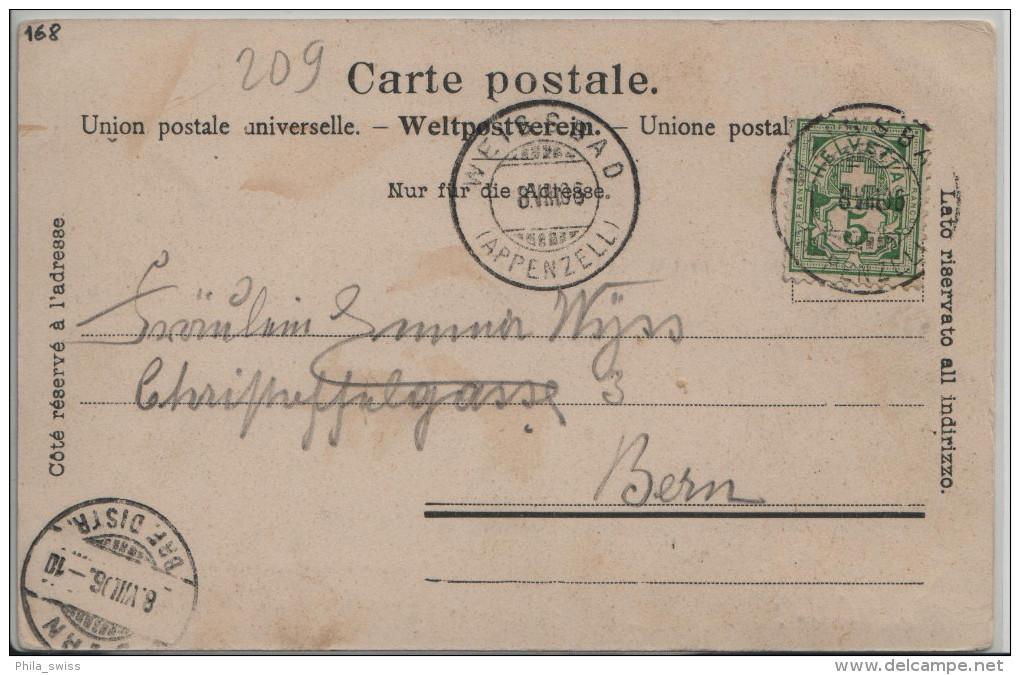 168
209
Carte postale.
Union postale universelle. – Weltpostverein. – Unione postal
Nur für die Adresse.
WEISSBAD
8.VIII.06
(APPENZELL)
HELVETIA
FRANCO
FRANCO
5
8.VIII.06
Côté réservé à l'adresse
Lato riservato all indirizzo.
Fräulein Emma Wyss
Christoffelgasse 3
Bern
BRF. DISTR.
8.VIII.06.–10
BERN
Phila_swiss
www.delcampe.net